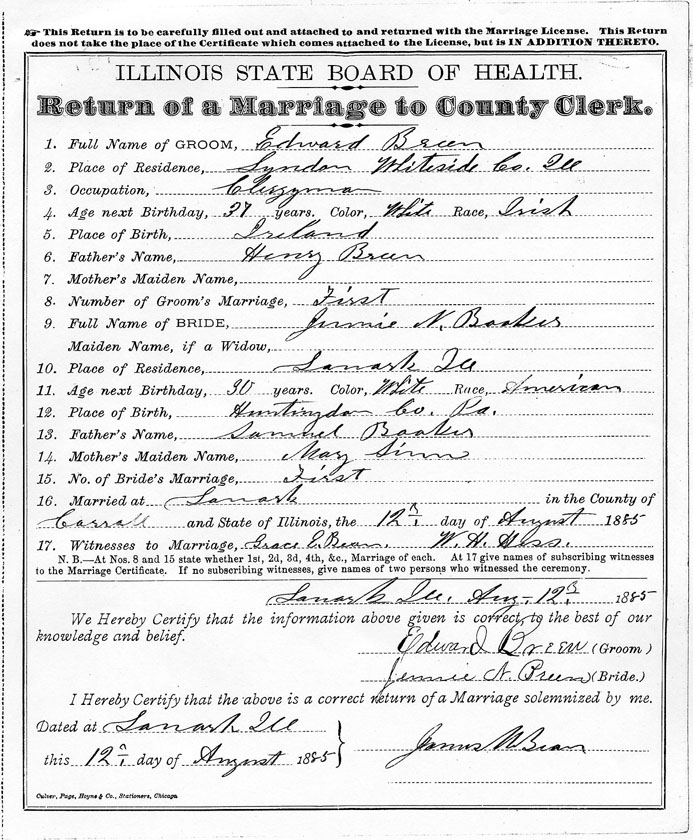 ☞ This Return is to be carefully filled out and attached to and returned with the Marriage License. This Return
does not take the place of the Certificate which comes attached to the License, but is IN ADDITION THERETO.
ILLINOIS STATE BOARD OF HEALTH.
Return of a Marriage to County Clerk.
1. Full Name of GROOM, Edward Breen
2. Place of Residence, Lyndon Whiteside Co. Ill
3. Occupation, Clergyman
4. Age next Birthday, 37 years. Color, White Race, Irish
5. Place of Birth, Ireland
6. Father's Name, Henry Breen
7. Mother's Maiden Name,
8. Number of Groom's Marriage, First
9. Full Name of BRIDE, Jennie N. Booker
Maiden Name, if a Widow,
10. Place of Residence, Lanark Ill
11. Age next Birthday, 30 years. Color, White Race, American
12. Place of Birth, Huntingdon Co. Pa.
13. Father's Name, Samuel Booker
14. Mother's Maiden Name, May Sinn
15. No. of Bride's Marriage, First
16. Married at Lanark in the County of
Carroll and State of Illinois, the 12th day of August 1885
17. Witnesses to Marriage, Grace E. Bean. W. H. Hess.
N. B.—At Nos. 8 and 15 state whether 1st, 2d, 3d, 4th, &c., Marriage of each. At 17 give names of subscribing witnesses
to the Marriage Certificate. If no subscribing witnesses, give names of two persons who witnessed the ceremony.
Lanark Ill. Aug. 12th 1885
We Hereby Certify that the information above given is correct, to the best of our
knowledge and belief.
Edward Breen (Groom)
Jennie N. Breen (Bride.)
I Hereby Certify that the above is a correct return of a Marriage solemnized by me.
Dated at Lanark Ill
this 12th day of August 1885
James M Bean
Culver, Page, Hoyne & Co., Stationers, Chicago